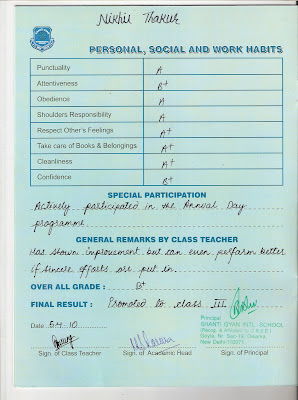 Nikhil Thakur
PERSONAL, SOCIAL AND WORK HABITS
Punctuality A
Attentiveness B+
Obedience A
Shoulders Responsibility A
Respect Other's Feelings A+
Take care of Books & Belongings A+
Cleanliness A+
Confidence B+
SPECIAL PARTICIPATION
Actively participated in the Annual Day
programme.
GENERAL REMARKS BY CLASS TEACHER
Has shown improvement but can even perform better
if sincere efforts are put in.
OVER ALL GRADE : B+
FINAL RESULT : Promoted to class III
Principal
SHANTI GYAN INTL. SCHOOL
(Recog. & Affiliated to C.B.S.E.)
Goyla, Nr. Sec-19, Dwarka,
New Delhi-110071
Date 5-4-10
Sign. of Class Teacher Sign. of Academic Head Sign. of Principal